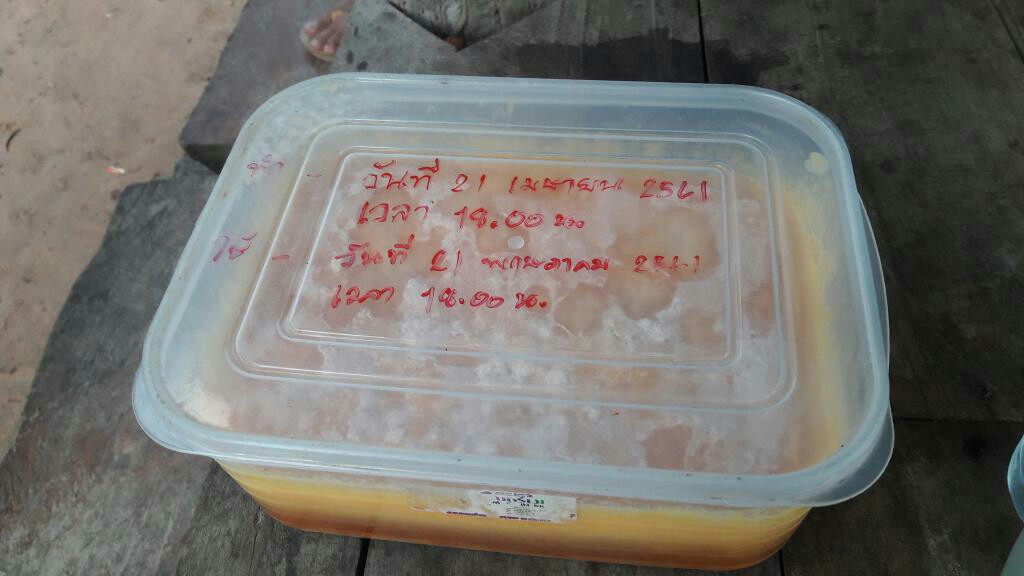 ทำ - วันที่ 21 เมษายน 2561
เวลา 18.00 น.
ใช้ - วันที่ 21 พฤษภาคม 2561
เวลา 18.00 น.